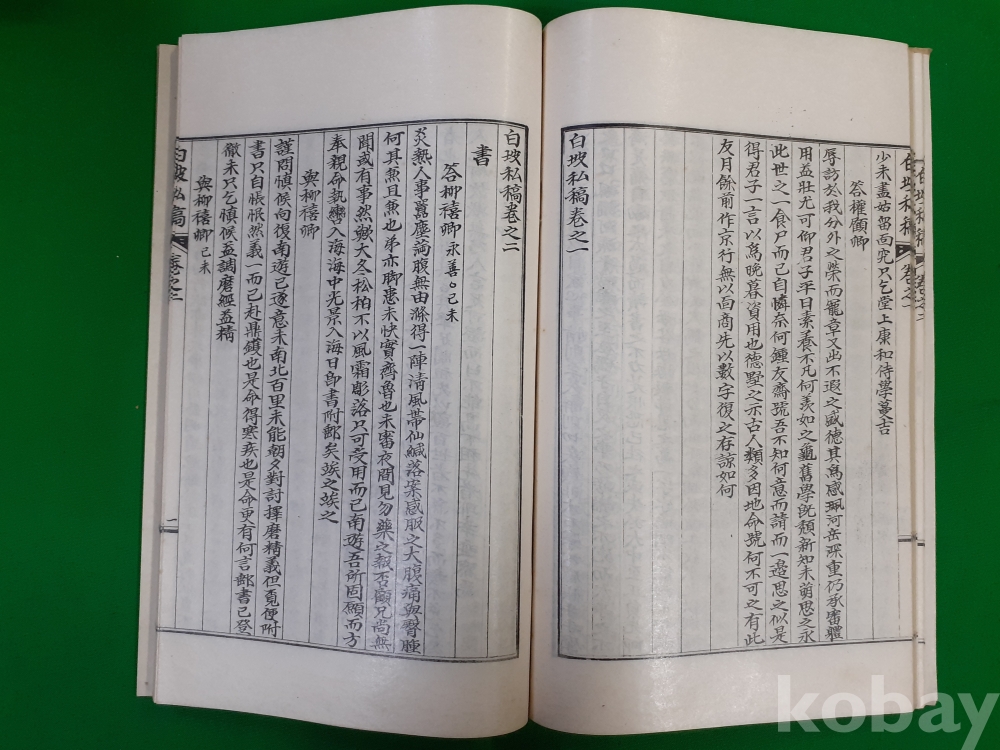 少未盡姑留面究只乞堂上康和侍學蔓吉
答權顧卿
辱訪於我分外之榮而寵章又出不瑕之盛德其爲感珮河岳深重仍承審體
用益壯尤可仰君子平日素養不凡何羨如之龜舊學旣頹新知未萌思之永
此世之一食尸而已自憐奈何鍾友齋號吾不知何意而請而一邊思之似是
得君子一言以爲晩暮資用也德墅之示古人類多因地命號何不可之有此
友月餘前作京行無以面商先以數字復之存諒如何
白坡私稿卷之一
白坡私稿卷之二
書
答柳禧卿 永善○己未
炎熱人事囂塵滿腹無由滌得一陣淸風帶仙緘落案感服之大腹痛與腎腫
何其無且無也弟亦脚患未快實齊魯也未審夜間見勿藥之報否顧兄尚無
聞或有事然歟大冬松柏不以風霜彫落只可受用而已南遊吾所固願而方
奉親命執
入海海中光景入海日卽書附郵矣竢之竢之
與柳禧卿
謹問愼候向復南遊已遂意未南北百里未能朝夕對討擇磨精義但覓便附
書只自悵悵然義一而已赴鼎鑊也是命得寒疾也是命更有何言鄙書已登
徹未只乞愼候益調磨經益精
與柳禧卿 己未
白坡私稿 卷之二 一
kobay